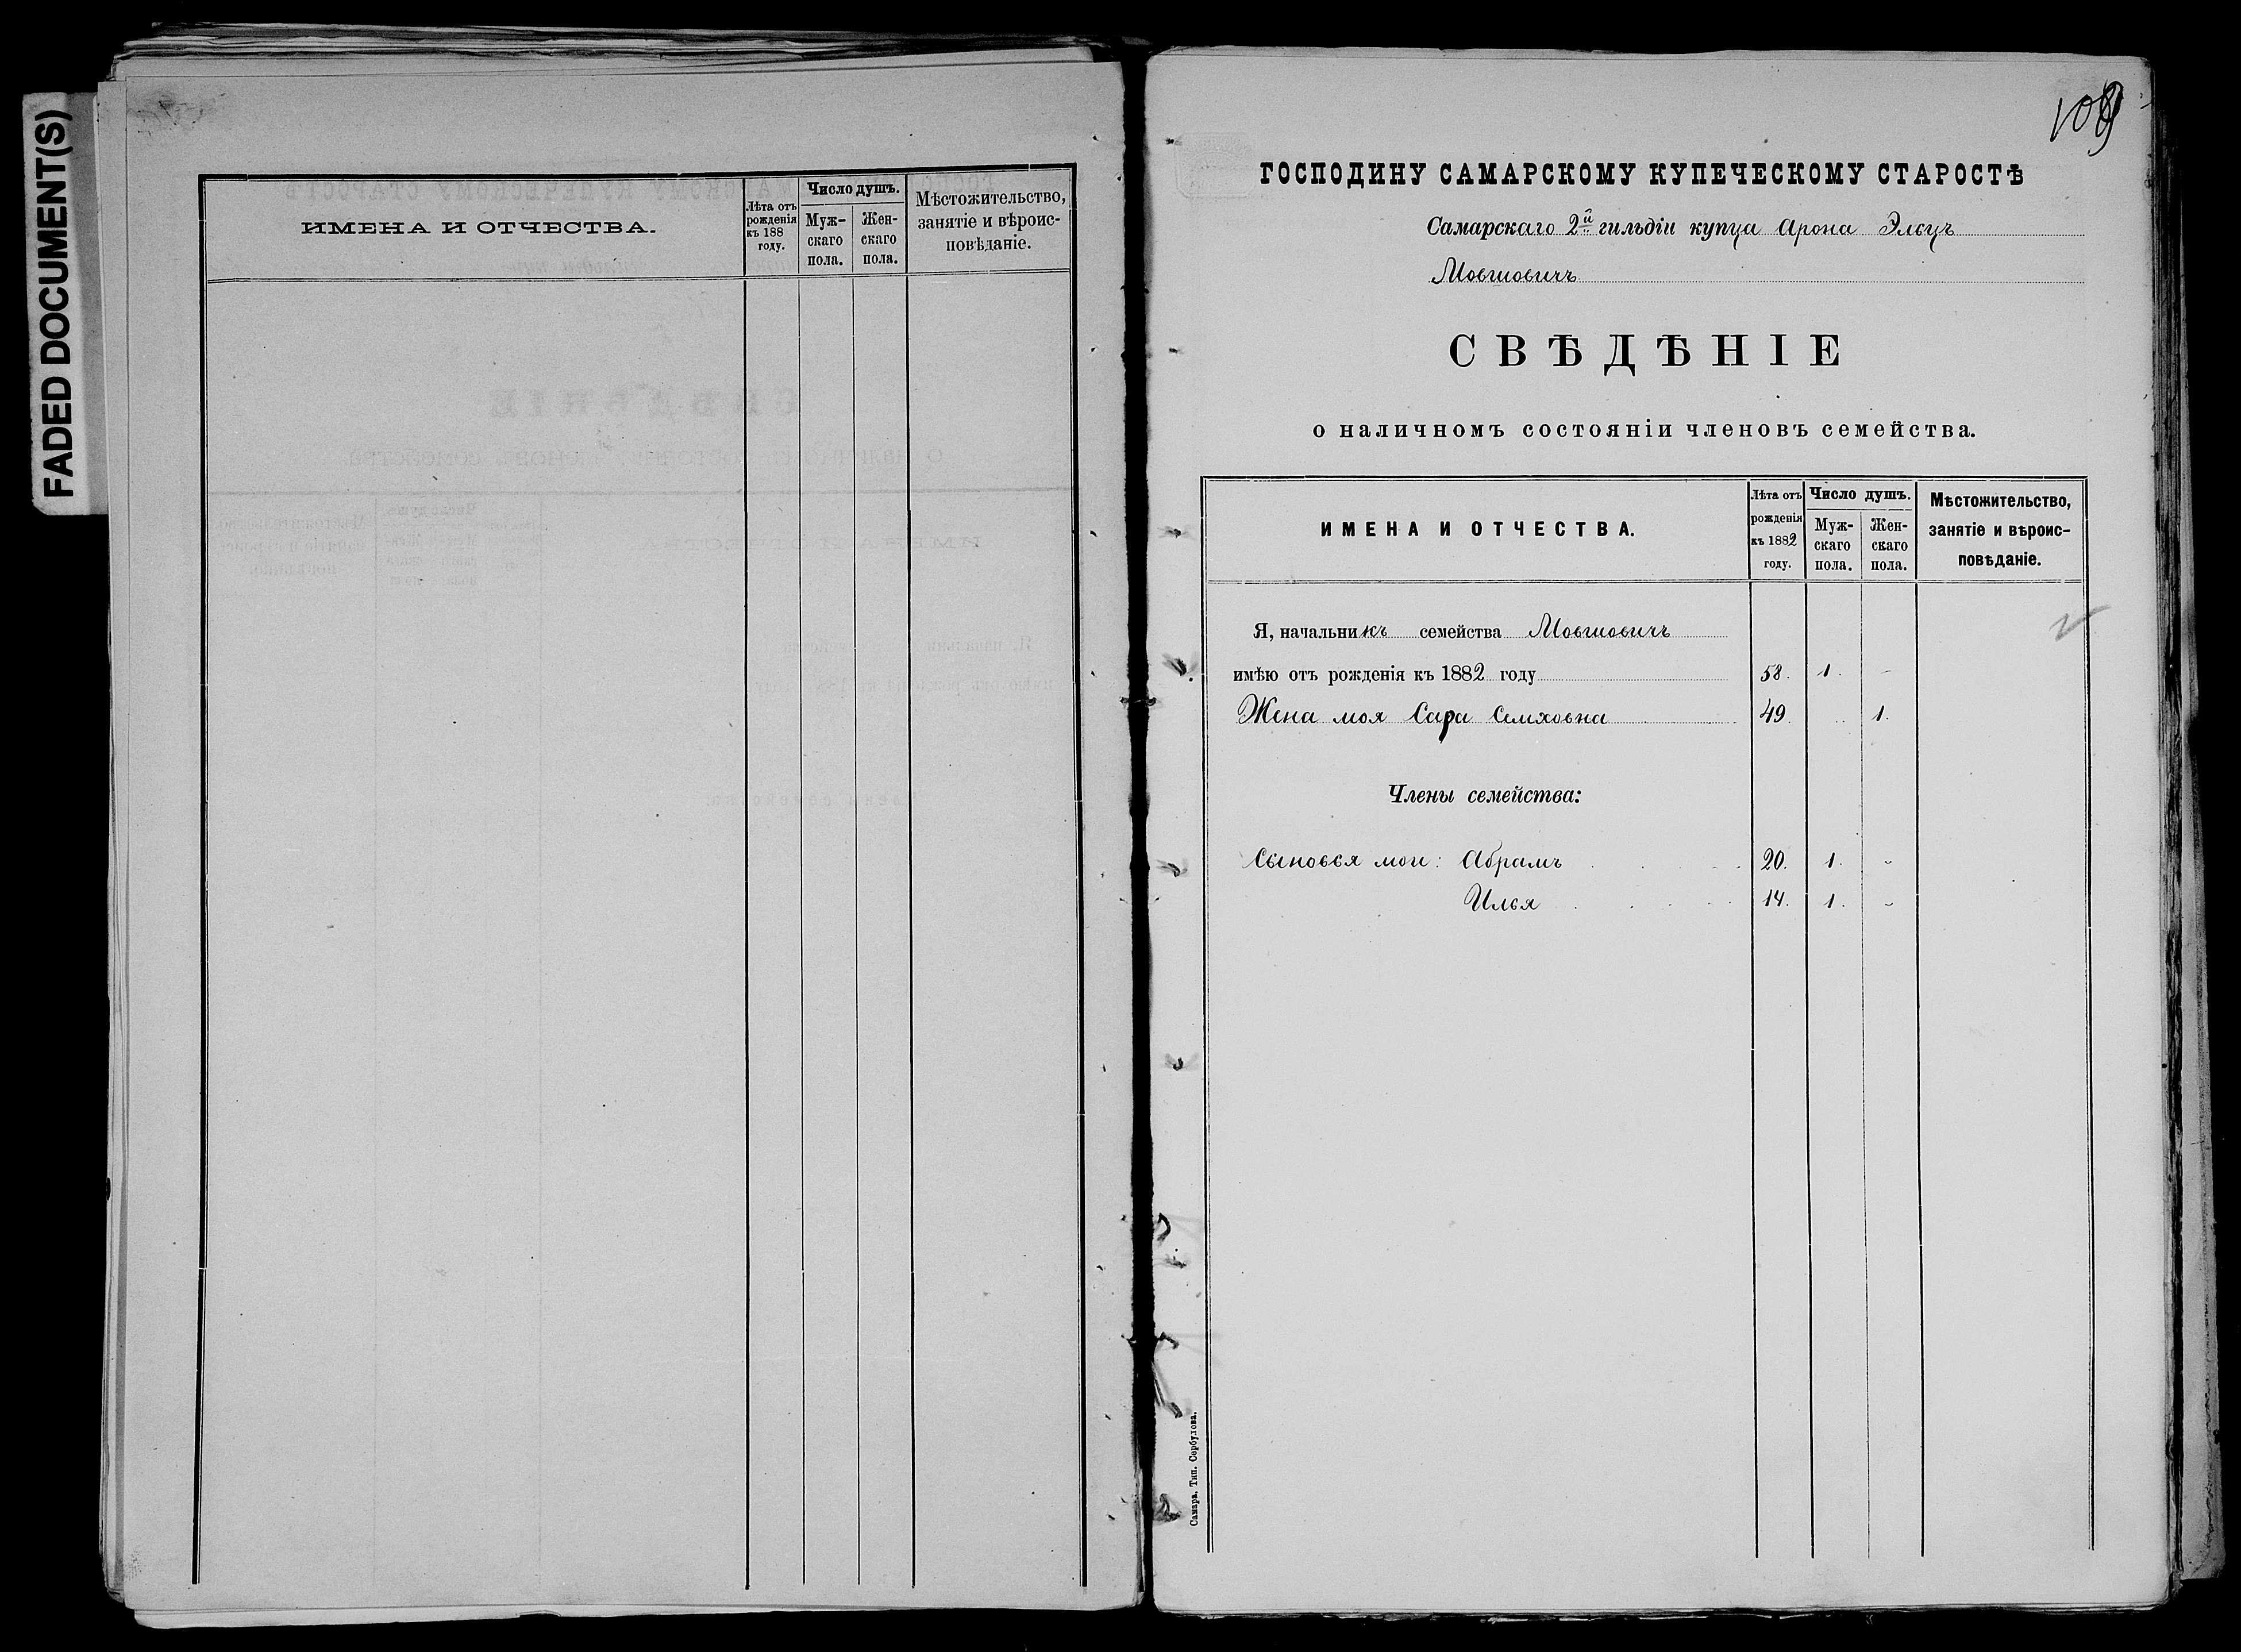 FADED DOCUMENT(S)
ИМЕНА И ОТЧЕСТВА.
Лѣта отъ
рожденія
къ 188
году.
Число душъ.
Муж-
скаго
пола.
Жен-
скаго
пола.
Мѣстожительство,
занятіе и вѣроис-
повѣданіе.
109
ГОСПОДИНУ САМАРСКОМУ КУПЕЧЕСКОМУ СТАРОСТѢ
Самарскаго 2й гильдіи купца Арона Элецъ
Мовшовичъ
СВѢДѢНІЕ
о наличномъ состояніи членовъ семейства.
ИМЕНА И ОТЧЕСТВА.
Лѣта отъ
рожденія
къ 1882
году.
Число душъ.
Муж-
скаго
пола.
Жен-
скаго
пола.
Мѣстожительство,
занятіе и вѣроис-
повѣданіе.
Я, начальникъ семейства Мовшовичъ
имѣю отъ рожденія къ 1882 году 58. 1. -
Жена моя Сара Семховна 49. 1.
Члены семейства:
Сыновья мои: Абрамъ 20. 1. -
Илья 14. 1. -
Самара. Тип. Сербулова.